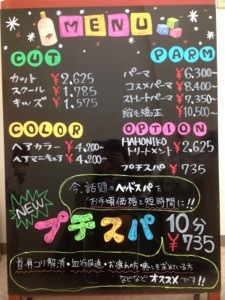 MENU
CUT
カット ¥2,625
スクール ¥1,785
キッズ ¥1,575
PARM
パーマ ¥6,300〜
コスメパーマ ¥8,400〜
ストレートパーマ ¥7,350〜
縮毛矯正 ¥10,500〜
COLOR
ヘアカラー ¥4,200〜
ヘアマニキュア ¥4,200〜
OPTION
HAHONIKO
トリートメント ¥2,625
プチスパ ¥735
今、話題のヘッドスパを
お手頃価格と短時間に!!
NEW
プチスパ 10分
¥735
首・肩コリ解消・血行促進・お疲れの方 癒しを求めている方
などなどにオススメです!!